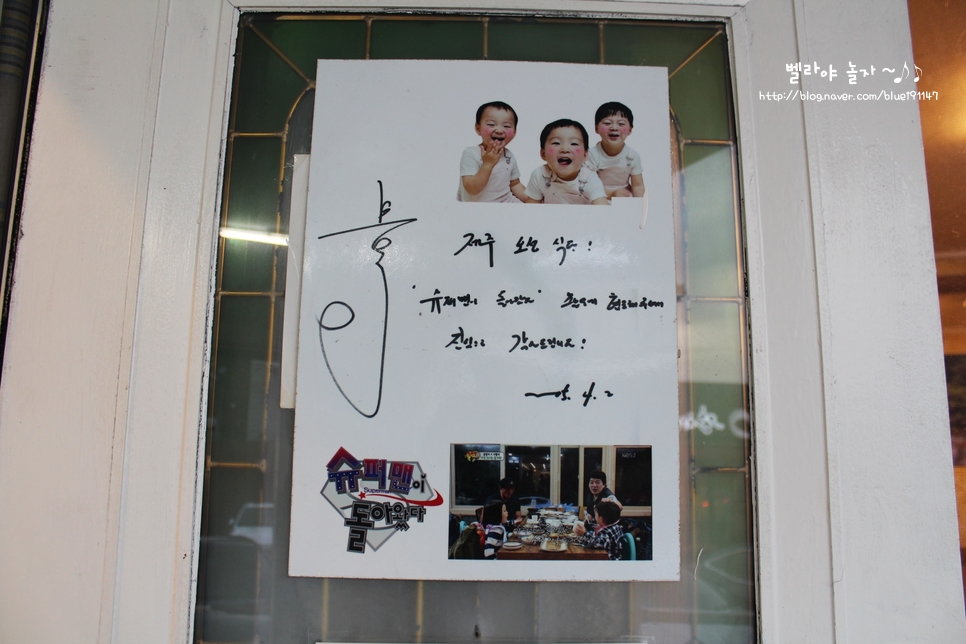 벨라야 놀자 ~♪♪
http://blog.naver.com/blue191147
제주 오손 식당!
"슈퍼맨이 돌아왔다" 촬영에 협조해주셔서
진심으로 감사드립니다!
15. 4. 2
슈퍼맨이
Superman
돌아왔다
KBS2